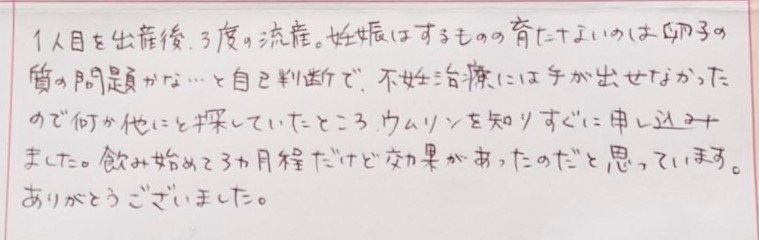 1人目を出産後、3度の流産。妊娠はするものの育たないのは卵子の
質の問題かな…と自己判断で、不妊治療には手が出せなかった
ので何か他にと探していたところ、ウムリンを知りすぐに申し込み
ました。飲み始めて3カ月程だけど効果があったのだと思っています。
ありがとうございました。